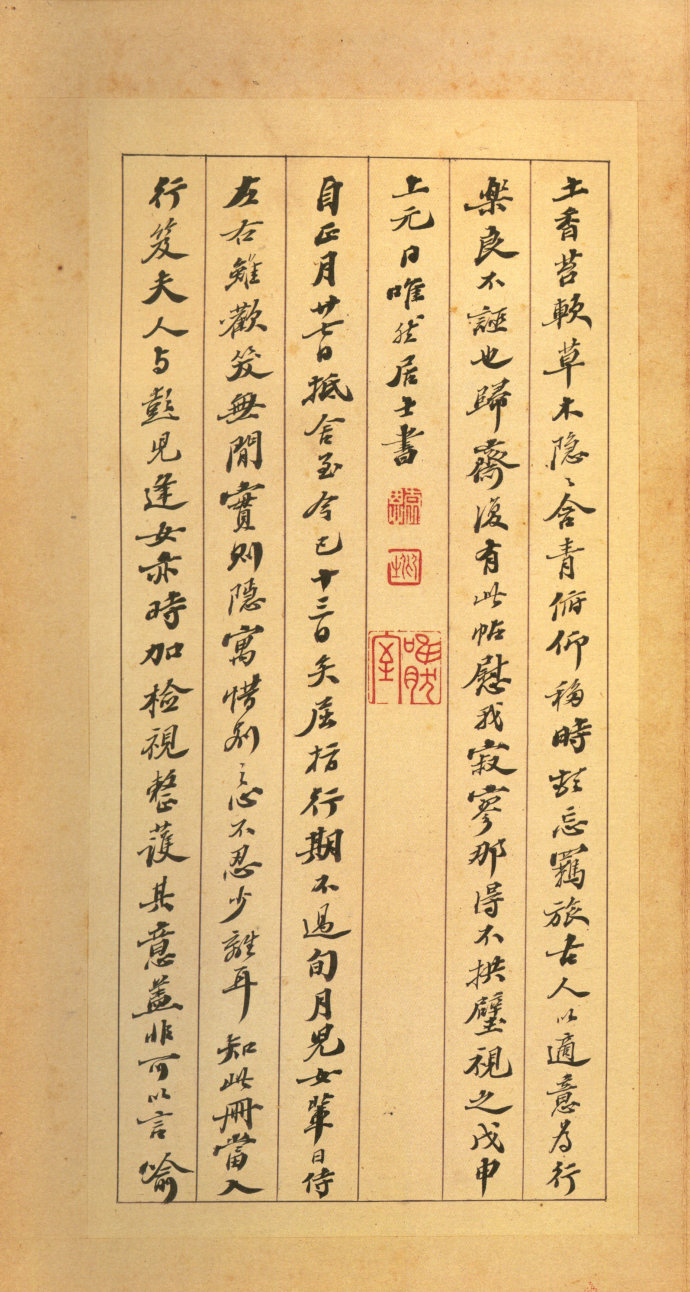 土香苔軟草木隐〻含青俯仰移時忘羈旅古人以適意為行
樂良不誣也歸齋復有此帖慰我寂寥那得不拱璧視之戊申
上元日唯然居士書
自正月廿七日抵舍至今已十三日矣屈指行期不過旬月兒女輩日侍
左右雖歡笑無閒實則隐寓惜别之心不忍少離耳知此冊當入
行笈夫人与彭兒逢女亦時加檢視整護其意蓋非可以言喻